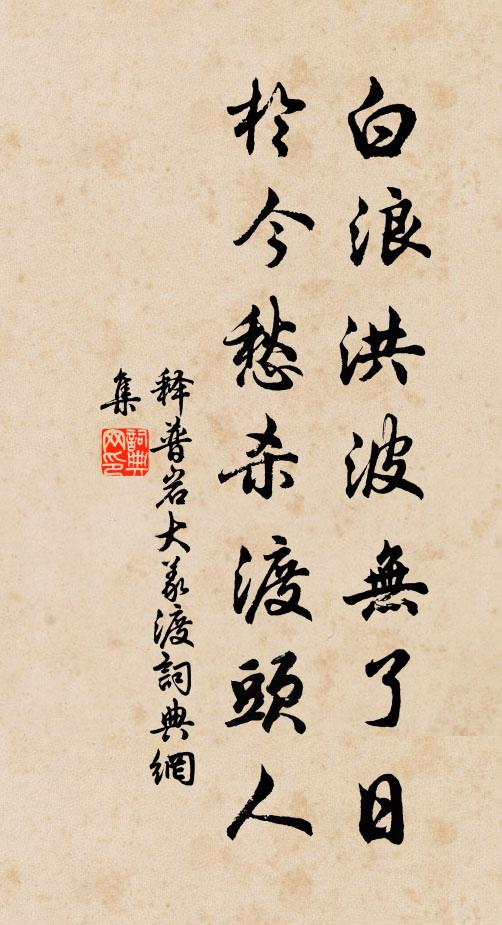 白浪洪波無了日
於今愁杀渡頭人
释普岩大义渡詞典網
集
詞典网印